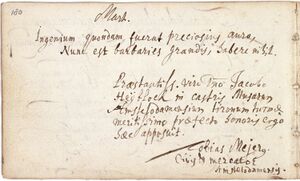 160
Mart.
Ingenium quondam fuerat preciosius auro,
Nunc est barbaries grandis, habere nihil.
Præstantiss. viro Dno Jacobo
Heyblock in castris Musarum
Amstelodamensium tironum turmæ
meritissimo præfecto honoris ergo
hæc apposuit.
Tobias
Civis et mercator
Amstelodamensis.